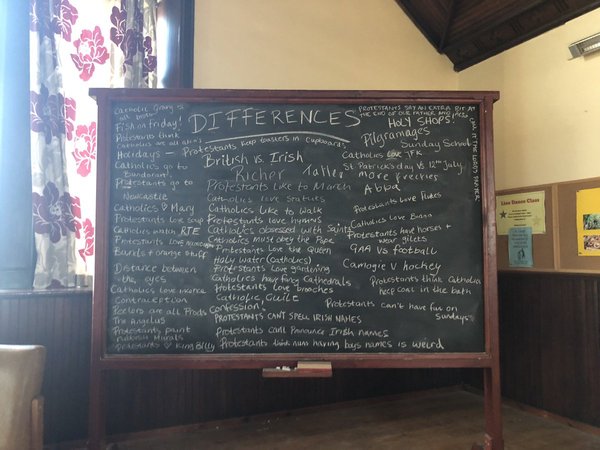 DIFFERENCES
Catholic Gravy is all Bisto
Fish on Friday!
Protestants think
Catholics are all
Holidays
Catholics go to
Bundoran
Protestants go to
Newcastle
Catholics ♡ Mary
Protestants love soup
Catholics watch RTE
Protestants love
Bands + orange stuff
Distance between
the eyes
Catholics love
Contraception
Peelers are all Prods
The Angelus
Protestants paint
Murals
Protestants ♡ King Billy
Protestants keep toasters in cupboards
British vs. Irish
Richer
Taller
Protestants Like to March
Catholics love statues
Catholics Like to walk
Protestants love
Catholics obsessed with Saints
Catholics must obey the Pope
Protestants Love the Queen
Holy water (Catholics)
Protestants Love gardening
Catholics have Cathedrals
Protestants Love brooches
Catholic Guilt
Confession!
PROTESTANTS CAN'T SPELL IRISH NAMES
Protestants can't Pronounce Irish names
Protestants think nuns having boys names is weird
PROTESTANTS SAY AN EXTRA BIT AT
THE END OF OUR FATHER
HOLY SHOPS!
Pilgramages
Sunday School
Catholics love JFK
St Patrick's day vs 12th July
more freckles
Abba
Protestants Love Flutes
Catholics Love Bingo
Protestants have horses +
wear gilets
GAA vs football
Camogie v hockey
Protestants think Catholics
keep coal in the bath
Protestants can't have fun on
Sundays
Line Dance Class